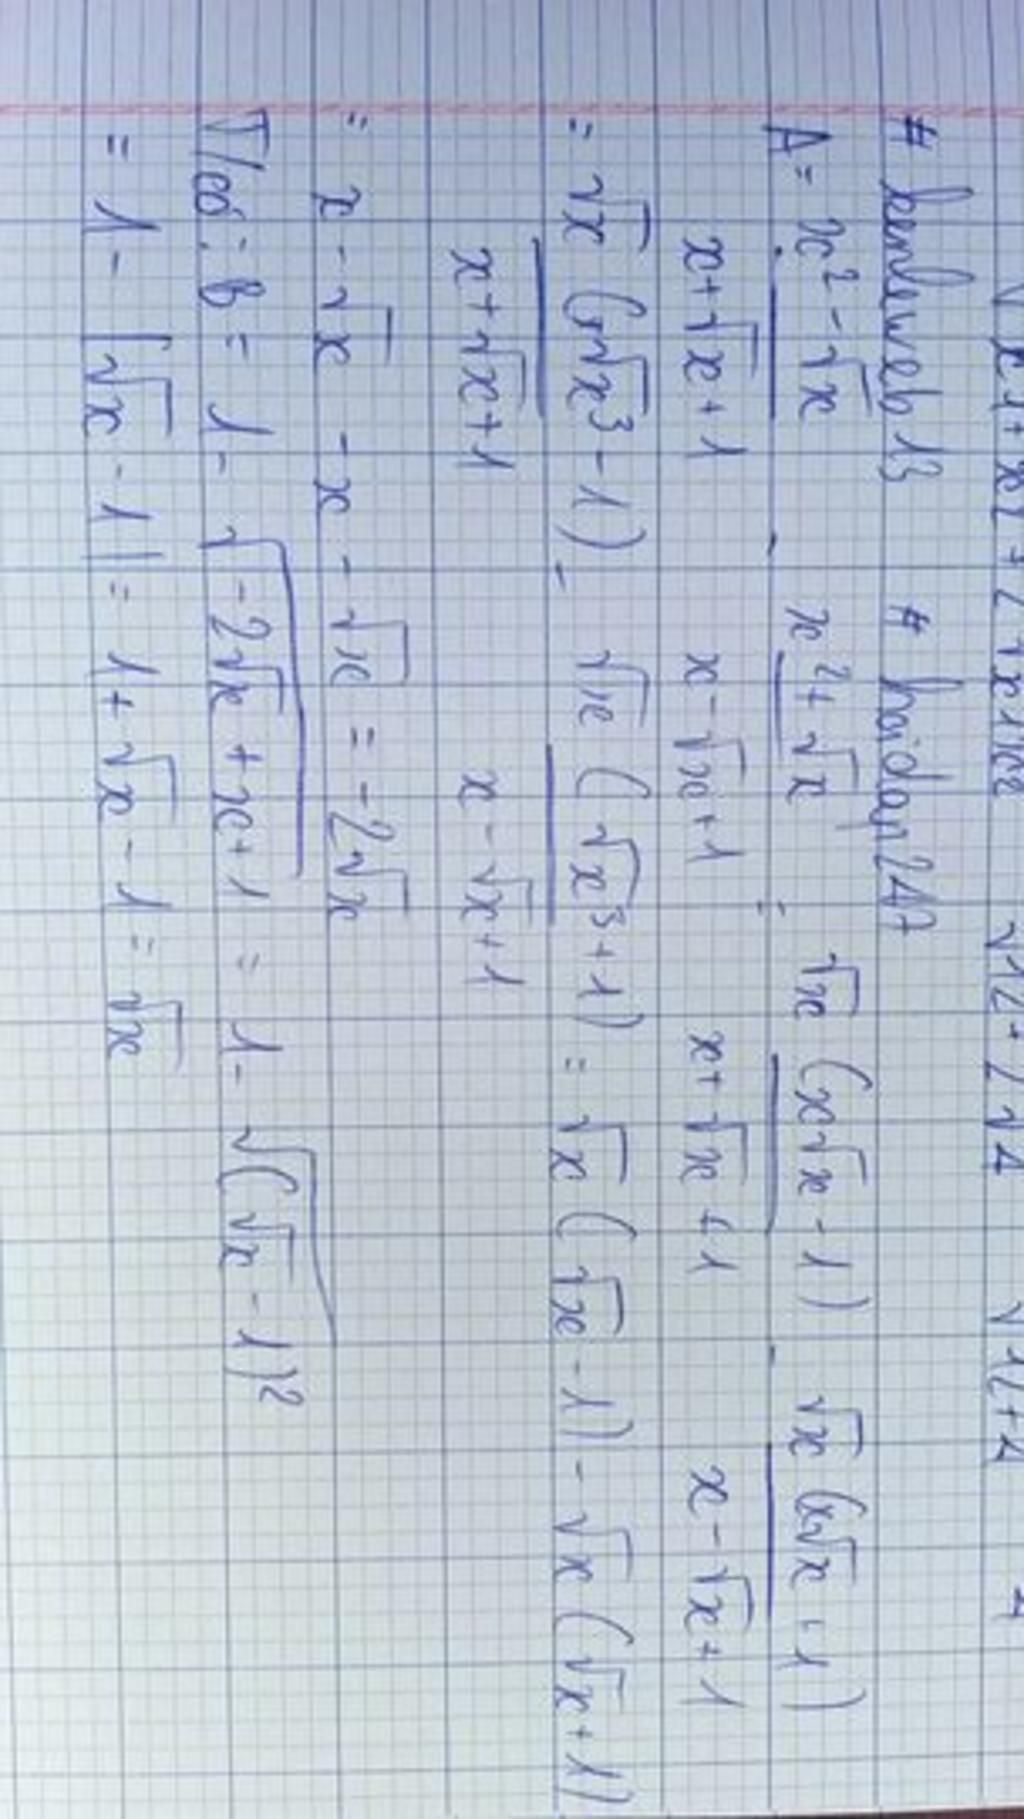 # kenleweb13 # hoidap247
A = x² - √x / x + √x + 1 - x² + √x / x - √x + 1 = √x (x√x - 1) / x + √x + 1 - √x (x√x + 1) / x - √x + 1
= √x (√x³ - 1) / x + √x + 1 - √x (√x³ + 1) / x - √x + 1 = √x (√x - 1) - √x (√x + 1)
= x - √x - x - √x = -2√x
T/có: B = 1 - √(-2√x + x + 1) = 1 - √((√x - 1)²)
= 1 - |√x - 1| = 1 + √x - 1 = √x